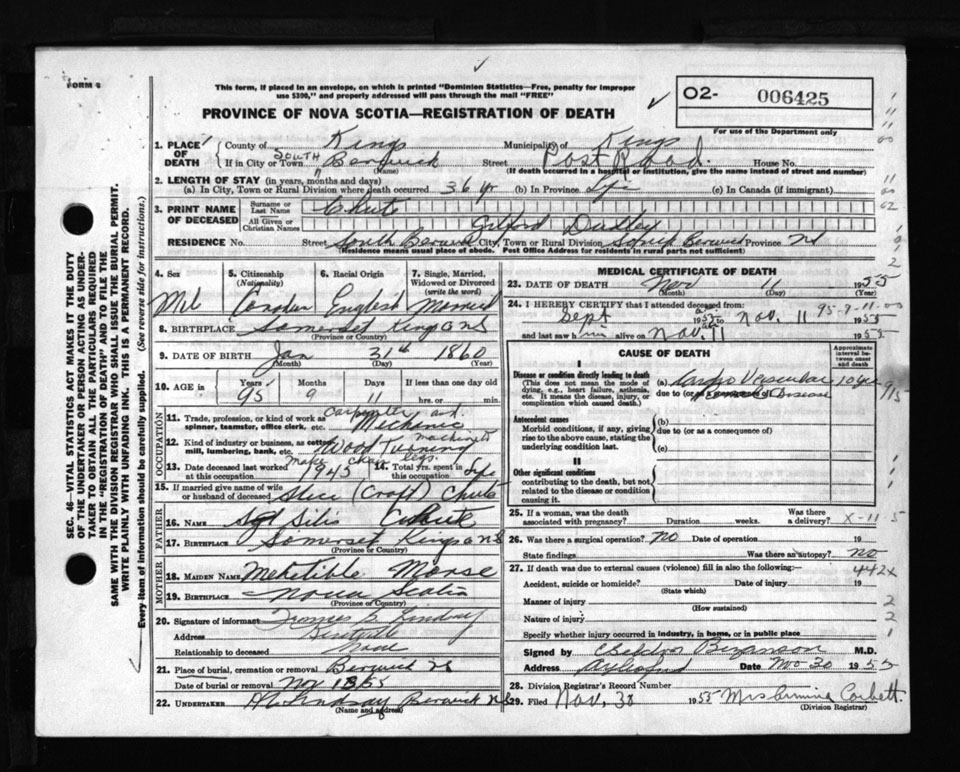 FORM 6
This form, if placed in an envelope, on which is printed "Dominion Statistics—Free, penalty for improper
use $300," and properly addressed will pass through the mail "FREE"
PROVINCE OF NOVA SCOTIA—REGISTRATION OF DEATH
O2- 006425
For use of the Department only
1. PLACE OF DEATH
County of Kings Municipality of Kings
If in City or Town South Berwick (Name) Street Post Road. House No.
(If death occurred in a hospital or institution, give the name instead of street and number)
2. LENGTH OF STAY (in years, months and days)
(a) In City, Town or Rural Division where death occurred 36 yr (b) In Province Life (c) In Canada (if immigrant)
3. PRINT NAME OF DECEASED
Surname or Last Name Chute
All Given or Christian Names Gilford Dudley
RESIDENCE No. Street South Berwick City, Town or Rural Division South Berwick Province NS
(Residence means usual place of abode. Post Office Address for residents in rural parts not sufficient)
SEC. 46—VITAL STATISTICS ACT MAKES IT THE DUTY
OF THE UNDERTAKER OR PERSON ACTING AS UNDER-
TAKER TO OBTAIN ALL THE PARTICULARS REQUIRED
IN THE "REGISTRATION OF DEATH" AND TO FILE THE
SAME WITH THE DIVISION REGISTRAR WHO SHALL ISSUE THE BURIAL PERMIT.
WRITE PLAINLY WITH UNFADING INK. THIS IS A PERMANENT RECORD.
Every item of information should be carefully supplied. (See reverse side for instructions.)
4. Sex 5. Citizenship (Nationality) 6. Racial Origin 7. Single, Married, Widowed or Divorced (write the word)
English Married
8. BIRTHPLACE Somerset Kings Co NS
(Province or Country)
9. DATE OF BIRTH Jan 31st 1860
(Month) (Day) (Year)
10. AGE in Years 95 Months 9 Days 11 If less than one day old hrs. or min.
OCCUPATION
11. Trade, profession, or kind of work as spinner, teamster, office clerk, etc. Carpenter and Mechanic
12. Kind of industry or business, as cotton mill, lumbering, bank, etc. Wood Turning machinest
make chair legs.
13. Date deceased last worked at this occupation 1945 14. Total yrs. spent in this occupation Life
15. If married give name of wife or husband of deceased Alice (Croft) Chute
FATHER
16. NAME Sgt Silis Chute
17. BIRTHPLACE Somerset Kings Co NS
(Province or Country)
MOTHER
18. MAIDEN NAME Mehetible Morse
19. BIRTHPLACE Nova Scotia
(Province or Country)
20. Signature of informant Lindsay
Address Berwick
Relationship to deceased None
21. Place of burial, cremation or removal Berwick NS
Date of burial or removal Nov 13/55
22. UNDERTAKER Lindsay Berwick NS
(Name and address)
MEDICAL CERTIFICATE OF DEATH
23. DATE OF DEATH Nov 11 1955
(Month) (Day) (Year)
24. I HEREBY CERTIFY that I attended deceased from:
Sept 1953 to Nov. 11 1955
and last saw him alive on Nov. 11 1955
95-9-11-00
CAUSE OF DEATH
Approximate interval between onset and death
I
Disease or condition directly leading to death
(This does not mean the mode of
dying, e.g., heart failure, asthenia,
etc. It means the disease, injury, or
complication which caused death.)
(a) Cardio Vascular 10 yrs
due to (or as a consequence of) Disease
Antecedent causes
Morbid conditions, if any, giving
rise to the above cause, stating the
underlying condition last.
(b)
due to (or as a consequence of)
(c)
II
Other significant conditions
contributing to the death, but not
related to the disease or condition
causing it.
25. If a woman, was the death associated with pregnancy? Duration weeks. Was there a delivery? X-11-5
26. Was there a surgical operation? NO Date of operation
State findings Was there an autopsy? no
27. If death was due to external causes (violence) fill in also the following:—
442x
Accident, suicide or homicide? Date of injury 19
(State which)
Manner of injury 2
(How sustained)
Nature of injury 2
Specify whether injury occurred in industry, in home, or in public place 1
Signed by Bezanson M.D.
Address Aylesford Date Nov 30 1955
28. Division Registrar's Record Number
29. Filed Nov. 30 1955 Mrs Corbett
(Division Registrar)